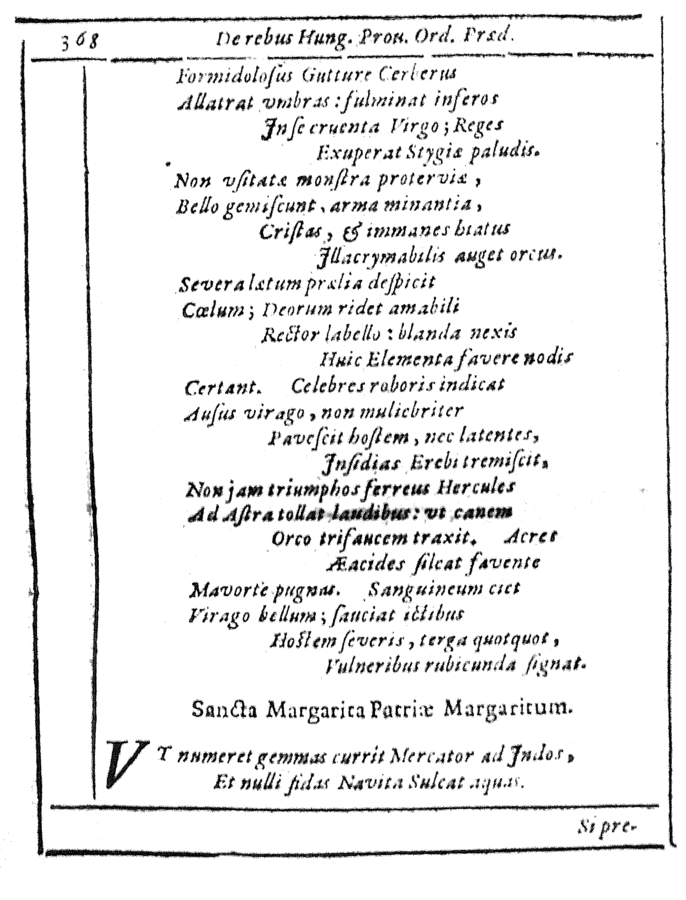 368 De rebus Hung. Prou. Ord. Præd.
Formidolosus Gutture Cerberus
Allatrat vmbras: fulminat inferos
Inse cruenta Virgo; Reges
Exuperat Stygiæ paludis.
Non vsitatæ monstra proterviæ,
Bello gemiscunt, arma minantia,
Cristas, & immanes hiatus
Illacrymabilis auget orcus.
Severa lætum prælia despicit
Cœlum; Deorum ridet amabili
Rector labello: blanda nexis
Huic Elementa favere nodis
Certant. Celebres roboris indicat
Ausus virago, non muliebriter
Pavescit hostem, nec latentes,
Insidias Erebi tremiscit,
Non jam triumphos ferreus Hercules
Ad Astra tollat laudibus: vt canem
Orco trifaucem traxit. Acret
Æacides sileat favente
Mavorte pugnas. Sanguineum ciet
Virago bellum; sauciat ictibus
Hostem severis, terga quotquot,
Vulneribus rubicunda signat.
Sancta Margarita Patriæ Margaritum.
VT numeret gemmas currit Mercator ad Indos,
Et nulli fidas Navita Sulcat aquas.
Si pre-